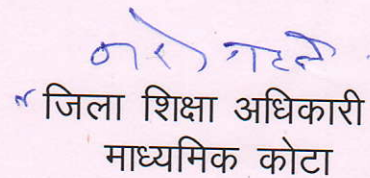 जिला शिक्षा अधिकारी
माध्यमिक कोटा